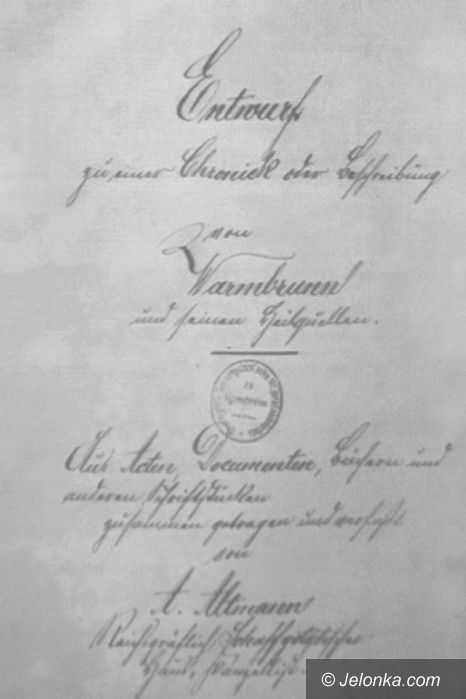 Entwurf
zu einer Chronick oder Beschreibung
von
Warmbrunn
und seinen Heilquellen.
Aus Acten Documenten, Büchern und
anderen Schriftstücken
zusammen getragen und verfasst
von
A. Altmann
Reichsgräflich Schaffgotsch'scher
© Jelonka.com